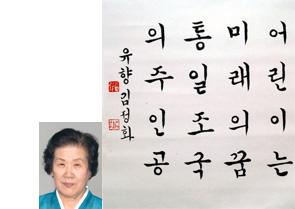 어린이는
미래의꿈
통일조국
의주인공
유향김정화